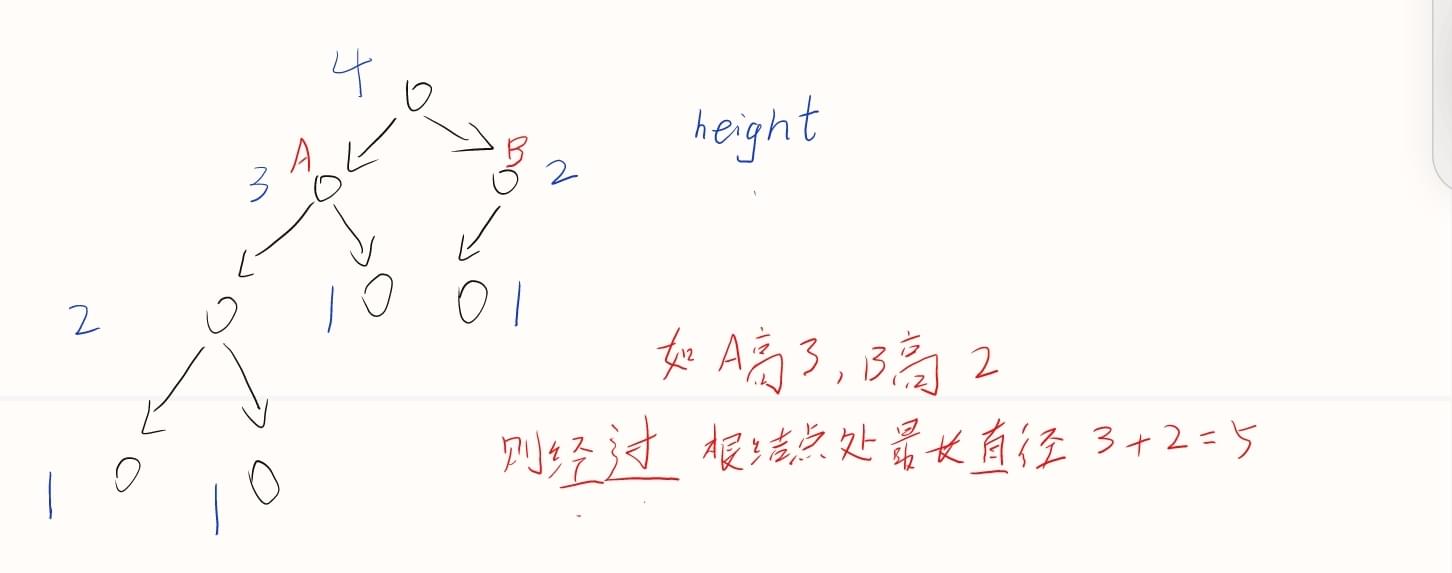 4
height
A
B
3
2
2
1
1
如 A高 3, B高 2
则经过 根结点处最长直径 3+2=5
1
1